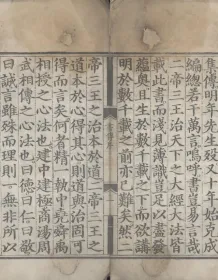 集傳明年先生歿又十年始克成
編總若干萬言嗚呼書豈易言哉
二帝三王治天下之大經大法皆
載此書而淺見薄識豈足以盡發
蘊奧且生於數千載之下而欲講
明於數千載之前亦已難矣然二
帝三王之治本於道二帝三王之
道本於心得其心則道與治固可
得而言矣何者精一執中堯舜禹
相授之心法也建中建極商湯周
武相傳之心法也曰德曰仁曰敬
曰誠言雖殊而理則一無非所以